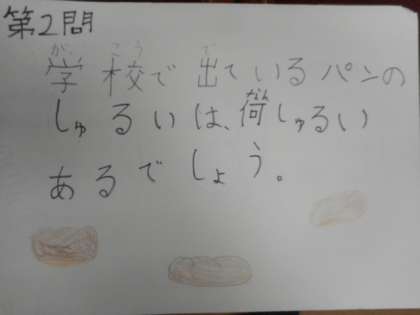 第2問
学校で出ているパンの
しゅるいは、荷しゅるい
あるでしょう。